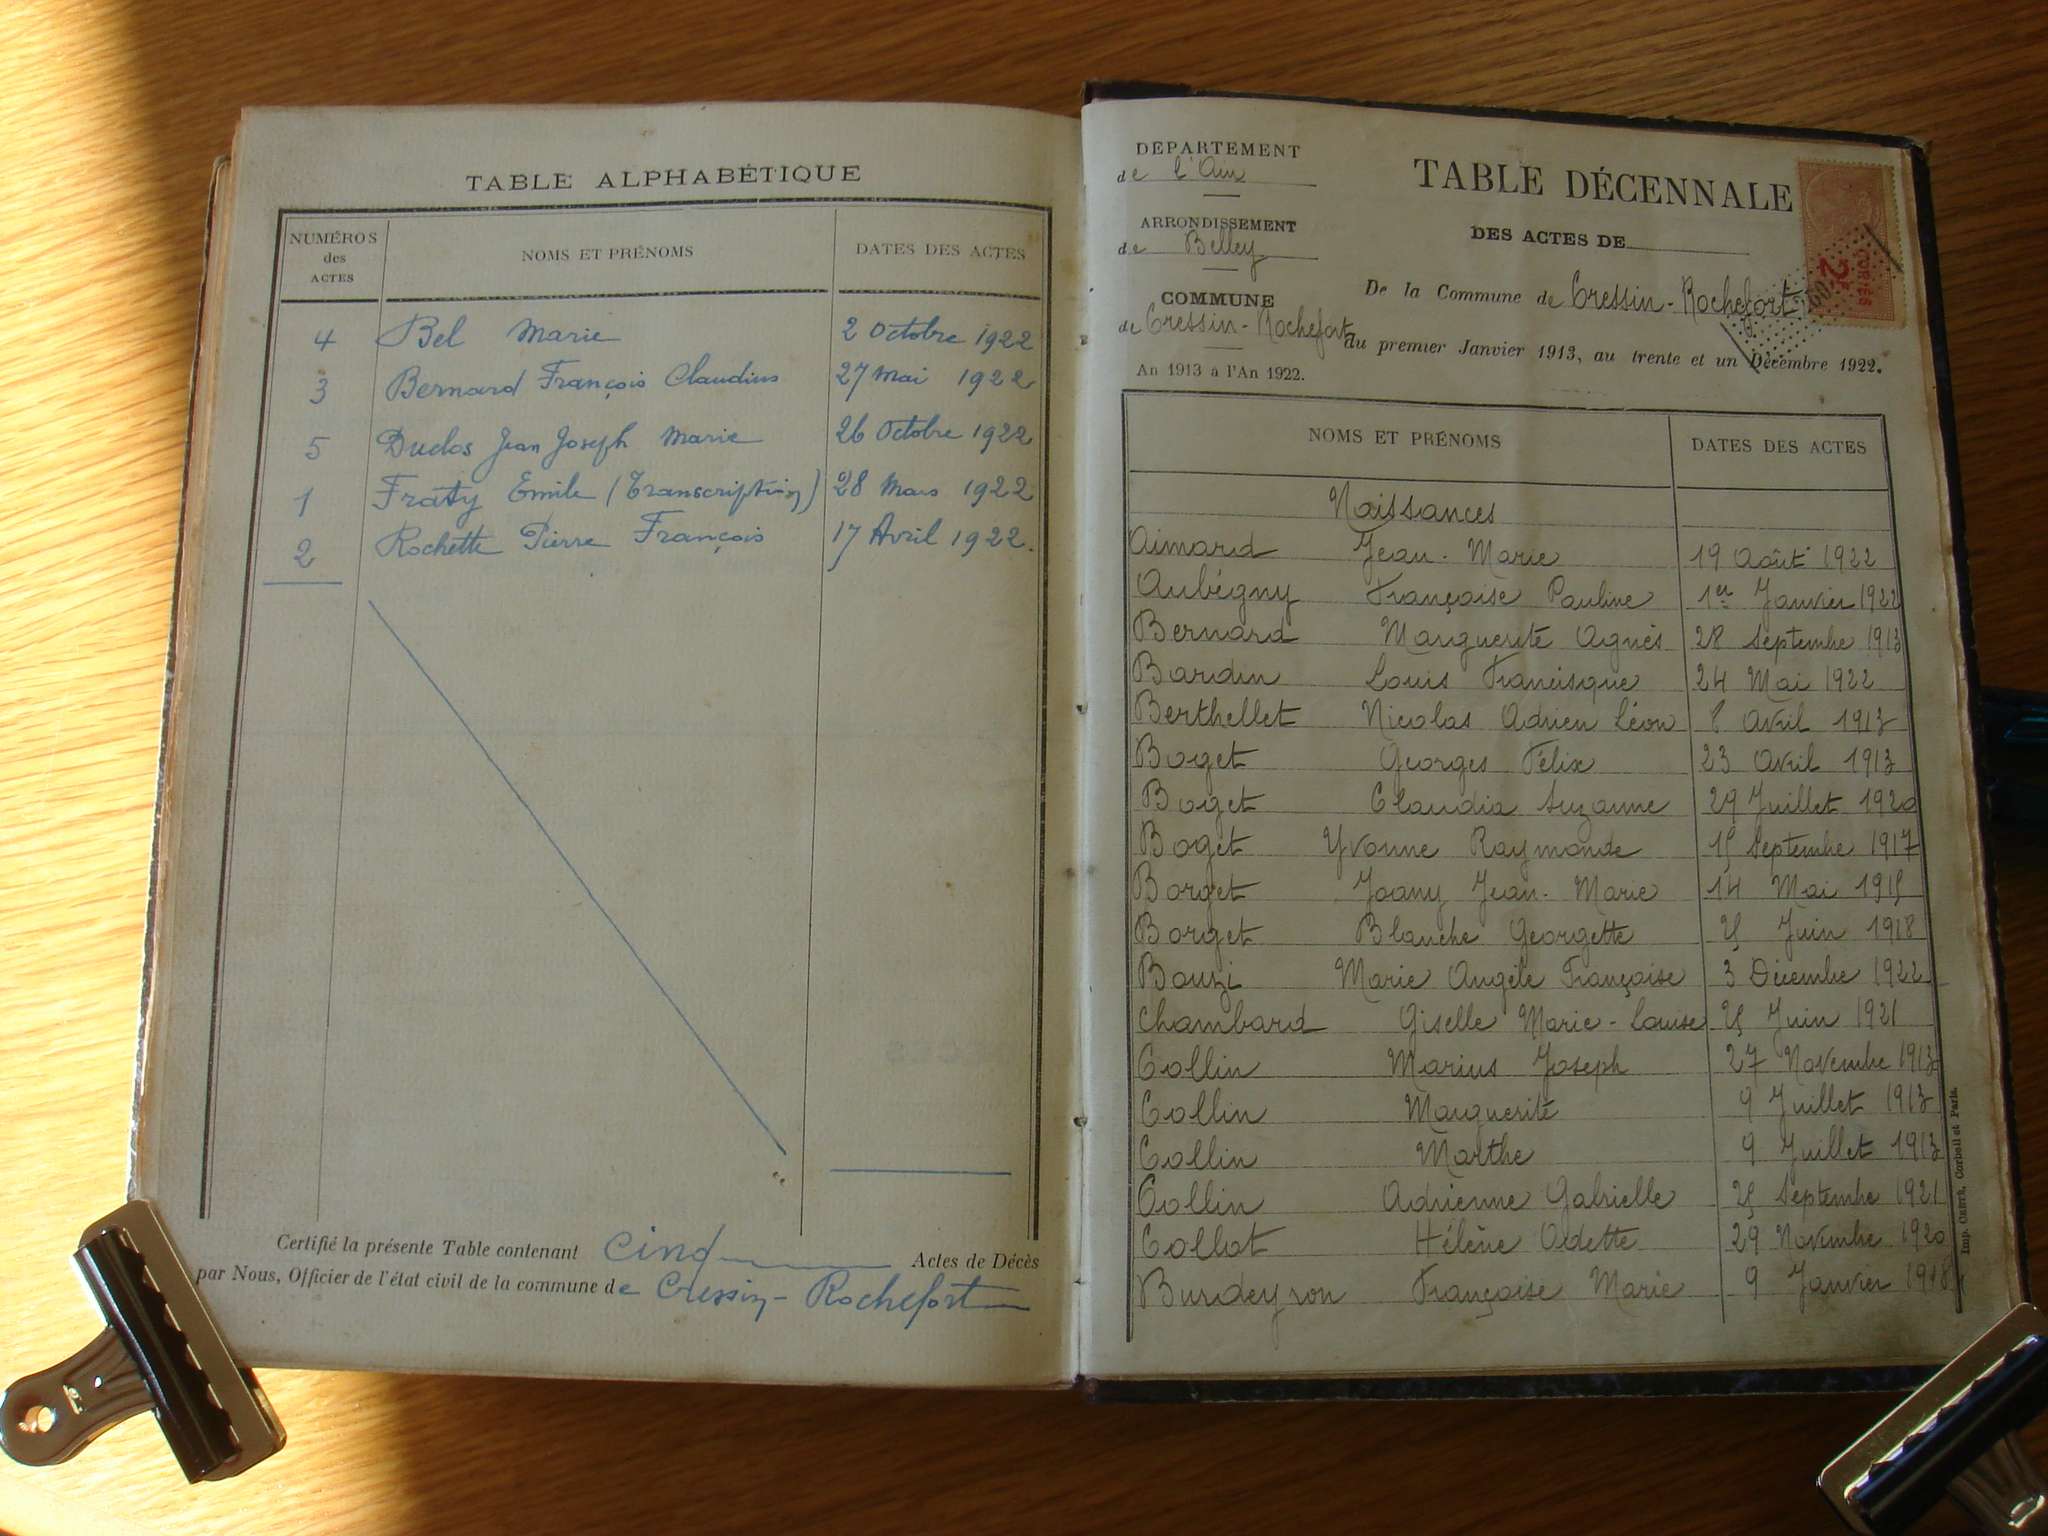 TABLE ALPHABÉTIQUE
NUMÉROS des ACTES NOMS ET PRÉNOMS DATES DES ACTES
4 Bel Marie 2 Octobre 1922
3 Bernard François Claudius 27 Mai 1922
5 Duclos Jean Joseph Marie 26 Octobre 1922
1 Fraty Emile (Transcription) 28 Mars 1922
2 Rochette Pierre François 17 Avril 1922.
Certifié la présente Table contenant cinq Actes de Décès
par Nous, Officier de l'état civil de la commune de Cressin-Rochefort
DÉPARTEMENT
de l'Ain
ARRONDISSEMENT
de Belley
COMMUNE
de Cressin-Rochefort
An 1913 à l'An 1922.
TABLE DÉCENNALE
DES ACTES DE
De la Commune de Cressin-Rochefort
du premier Janvier 1913, au trente et un Décembre 1922.
NOMS ET PRÉNOMS DATES DES ACTES
Naissances
Aimard Jean-Marie 19 Août 1922
Aubégny Françoise Pauline 1er Janvier 1922
Bernard Marguerite Agnès 28 Septembre 1913
Bardin Louis Francisque 24 Mai 1922
Berthellet Nicolas Adrien Léon 8 Avril 1913
Boget Georges Félix 23 Avril 1913
Boget Claudia Suzanne 29 Juillet 1920
Boget Yvonne Raymonde 15 Septembre 1917
Borget Joany Jean-Marie 14 Mai 1915
Borget Blanche Georgette 25 Juin 1918
Bouzi Marie Angèle Françoise 3 Décembre 1922
Chambard Giselle Marie-Louise 25 Juin 1921
Collin Marius Joseph 27 Novembre 1913
Collin Marguerite 9 Juillet 1913
Collin Marthe 9 Juillet 1913
Collin Adrienne Gabrielle 25 Septembre 1921
Collot Hélène Odette 29 Novembre 1920
Burdeyron Françoise Marie 9 Janvier 1918